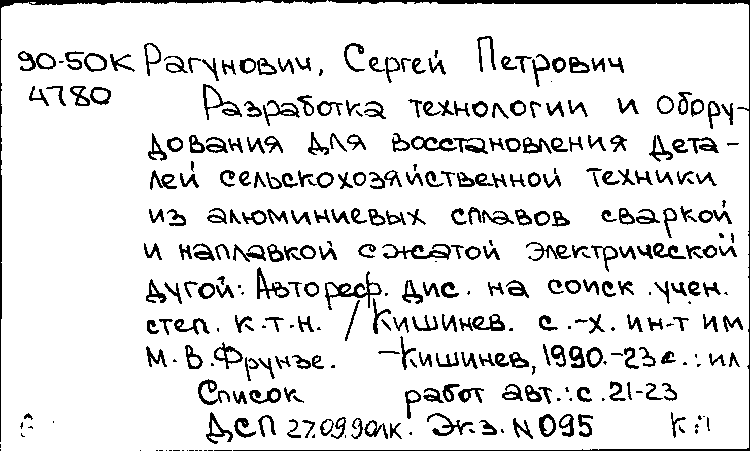 90-50К Рагунович, Сергей Петрович
4780 Разработка технологии и обору-
дования для восстановления дета-
лей сельскохозяйственной техники
из алюминиевых сплавов сваркой
и наплавкой сжатой электрической
дугой: Автореф. дис. на соиск. учен.
степ. к.т.н. / Кишинев. с.-х. ин-т им.
М.В.Фрунзе. -Кишинев, 1990.-23с.: ил.
Список работ авт.: с.21-23
ДСП 27.09.90 Экз. N 095